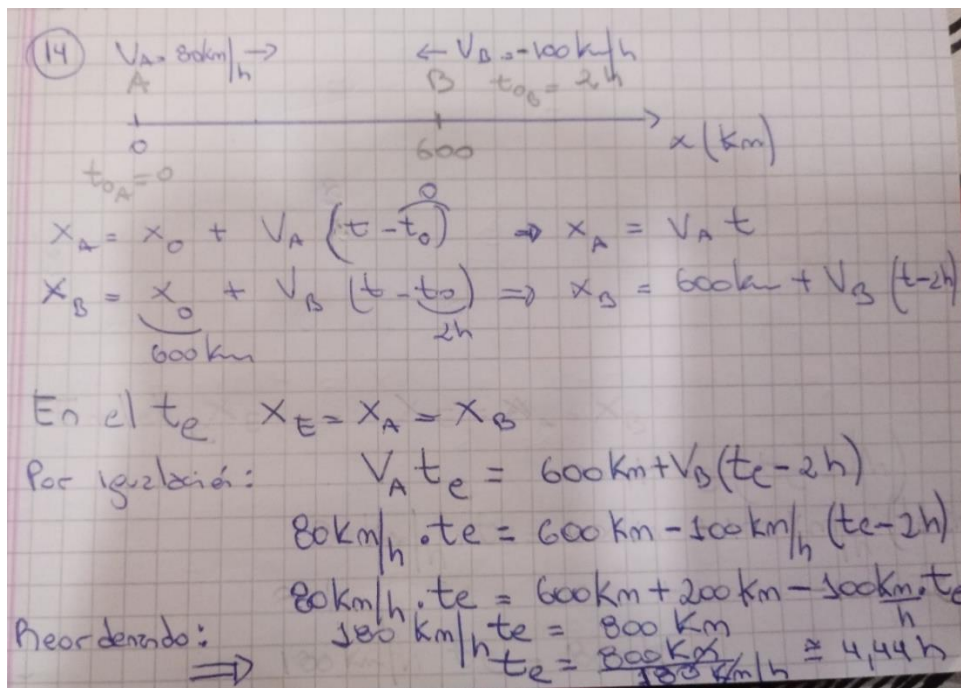 14 VA = 80km/h → ← VB = -100km/h
A B t0B = 2h
0 600 x (km)
t0A = 0
0
XA = X0 + VA (t - t0) ⇒ XA = VA t
XB = X0 + VB (t - t0) ⇒ XB = 600km + VB (t-2h)
600km 2h
En el te XE = XA = XB
Por igualación: VA te = 600km + VB (te - 2h)
80km/h · te = 600km - 100km/h (te - 2h)
80km/h · te = 600km + 200km - 100km/h · te
Reordenando: 180 km/h te = 800 km
⇒ te = 800km / 180 km/h ≅ 4,44h